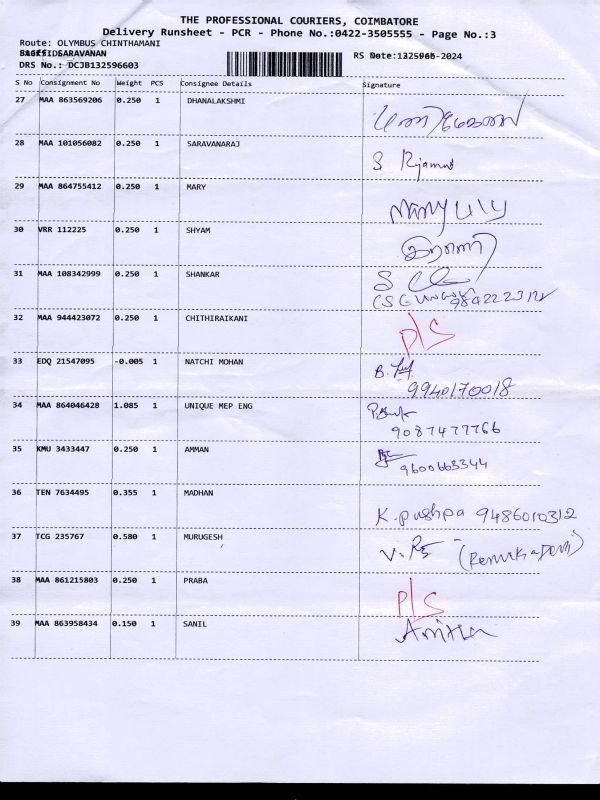 THE PROFESSIONAL COURIERS, COIMBATORE
Delivery Runsheet - PCR - Phone No.:0422-3505555 - Page No.:3
Route: OLYMBUS CHINTHAMANI
SARAVANAN
DRS No.: DCJB132596603
S No Consignment No Weight PCS Consignee Details Signature
27 MAA 863569206 0.250 1 DHANALAKSHMI
28 MAA 101056082 0.250 1 SARAVANARAJ S
29 MAA 864755412 0.250 1 MARY
30 VRR 112225 0.250 1 SHYAM
31 MAA 108342999 0.250 1 SHANKAR S
32 MAA 944423072 0.250 1 CHITHIRAIKANI P/S
33 EDQ 21547095 -0.005 1 NATCHI MOHAN B.
9940170018
34 MAA 864046428 1.085 1 UNIQUE MEP ENG
9087477766
35 KMU 3433447 0.250 1 AMMAN
9600663344
36 TEN 7634495 0.355 1 MADHAN K. pushpa 9486010312
37 TCG 235767 0.580 1 MURUGESH
38 MAA 861215803 0.250 1 PRABA P/S
39 MAA 863958434 0.150 1 SANIL